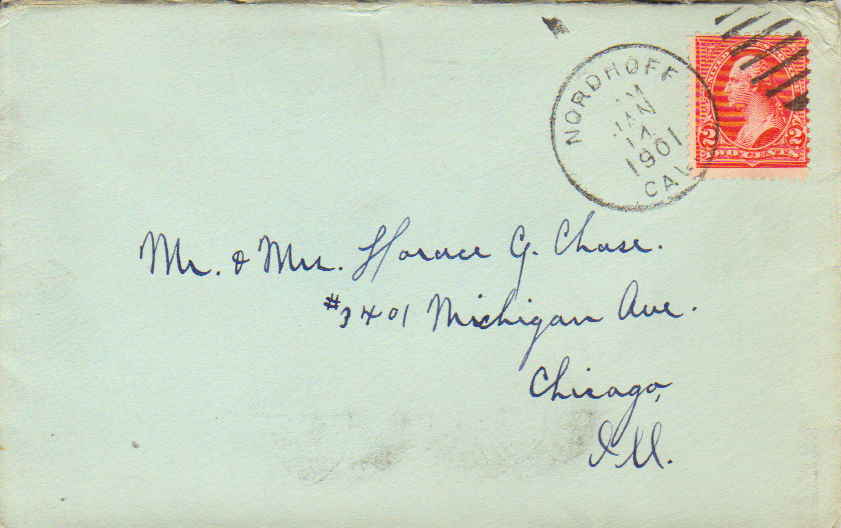 NORDHOFF
JAN
14
1901
CAL
2 2
TWO CENTS
Mr. & Mrs. Horace G. Chase.
#3401 Michigan Ave.
Chicago,
Ill.